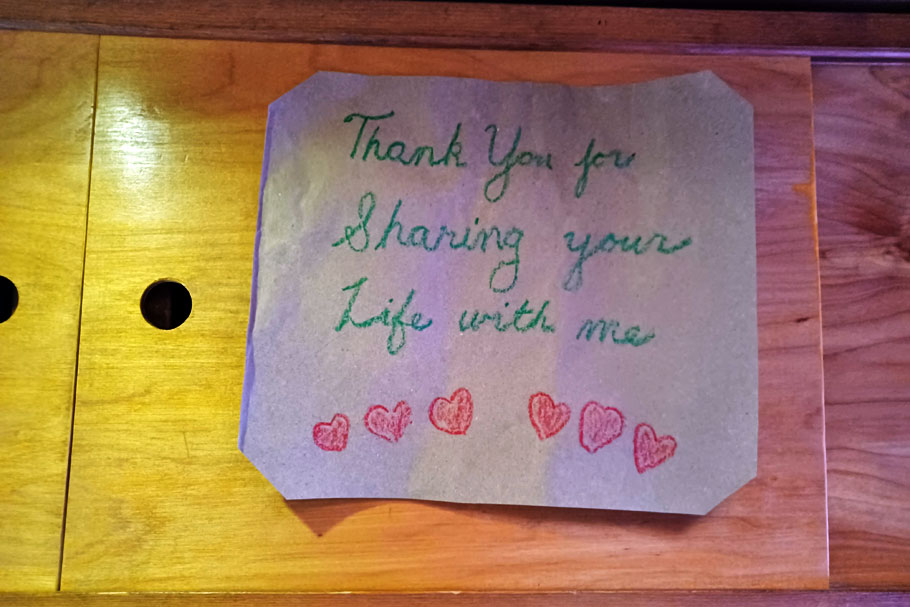 Thank You for
Sharing your
Life with me